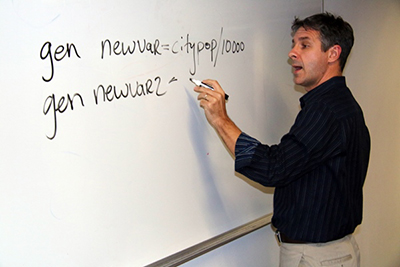 gen newvar=citypop/10000
gen newvar2=